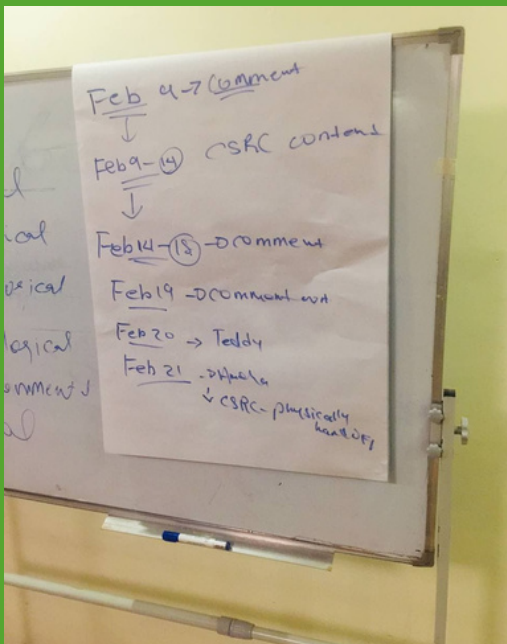 Feb 9 → Comment
Feb 9 - 14 CSRC content
Feb 14 - 18 → comment
Feb 19 → comment
Feb 20 → Teddy
Feb 21 →
↓ CSRC - physically
ical
orical
logical
ernments